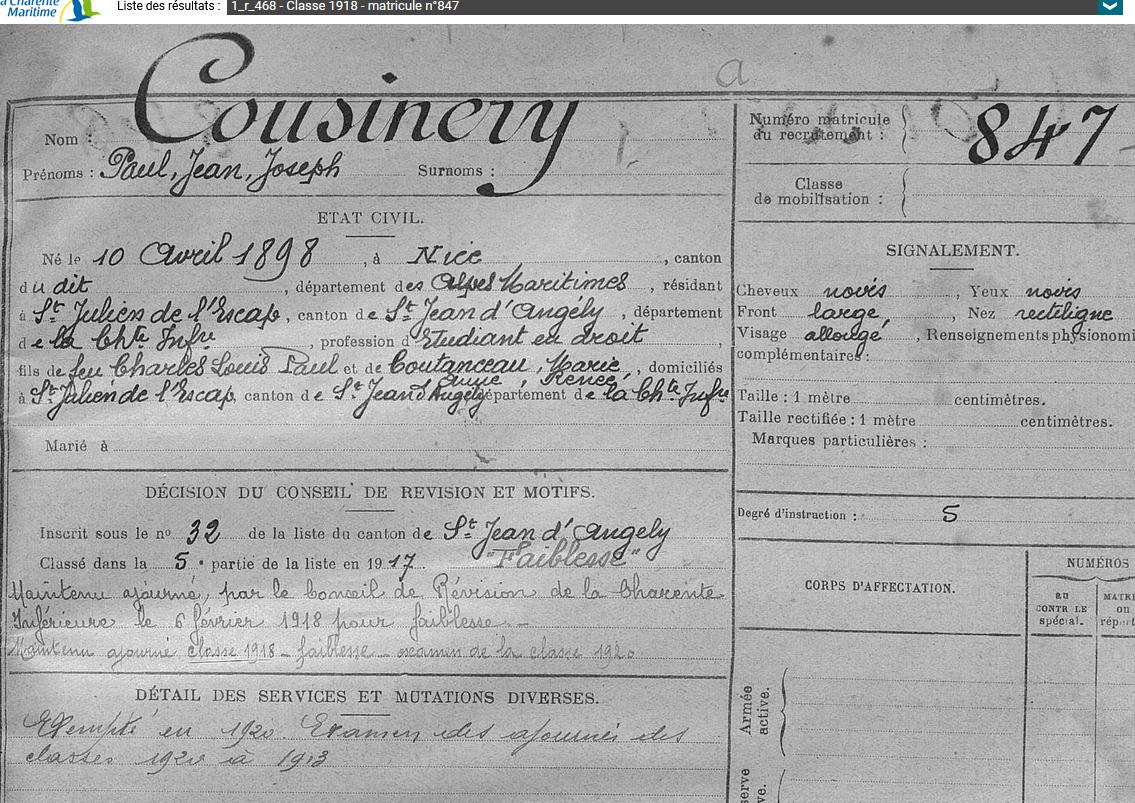 la Charente
Maritime
Liste des résultats : 1_r_468 - Classe 1918 - matricule n°847
a
Nom : Cousinery
Prénoms : Paul, Jean, Joseph Surnoms :
Numéro matricule
du recrutement : 847
Classe
de mobilisation :
ETAT CIVIL.
Né le 10 Avril 1898, à Nice, canton
du dit, département des Alpes Maritimes, résidant
à St Julien de l'Escap, canton de St Jean d'Angély, département
de la Chte Infre, profession d'Etudiant en droit,
fils de feu Charles Louis Paul et de Coutanceau, Marie, domiciliés
Anne, Renée
à St Julien de l'Escap, canton de St Jean d'Angély département de la Chte Infre
Marié à
SIGNALEMENT.
Cheveux noirs, Yeux noirs
Front large, Nez rectiligne
Visage allongé, Renseignements physionomi
complémentaires :
Taille : 1 mètre centimètres.
Taille rectifiée : 1 mètre centimètres.
Marques particulières :
Degré d'instruction : 5
DÉCISION DU CONSEIL DE REVISION ET MOTIFS.
Inscrit sous le no 32 de la liste du canton de St Jean d'Angely
Classé dans la 5e partie de la liste en 1917. "Faiblesse"
Maintenu ajourné, par le Conseil de Révision de la Charente
Inférieure le 6 février 1918 pour faiblesse. -
Maintenu ajourné classe 1918 - faiblesse - examen de la classe 1920
DÉTAIL DES SERVICES ET MUTATIONS DIVERSES.
Exempté en 1920. Examen des ajournés des
classes 1920 à 1913
CORPS D'AFFECTATION.
NUMÉROS
au
CONTRÔLE
spécial.
MATRI
ou
répert
Armée
active.
serve
ve.